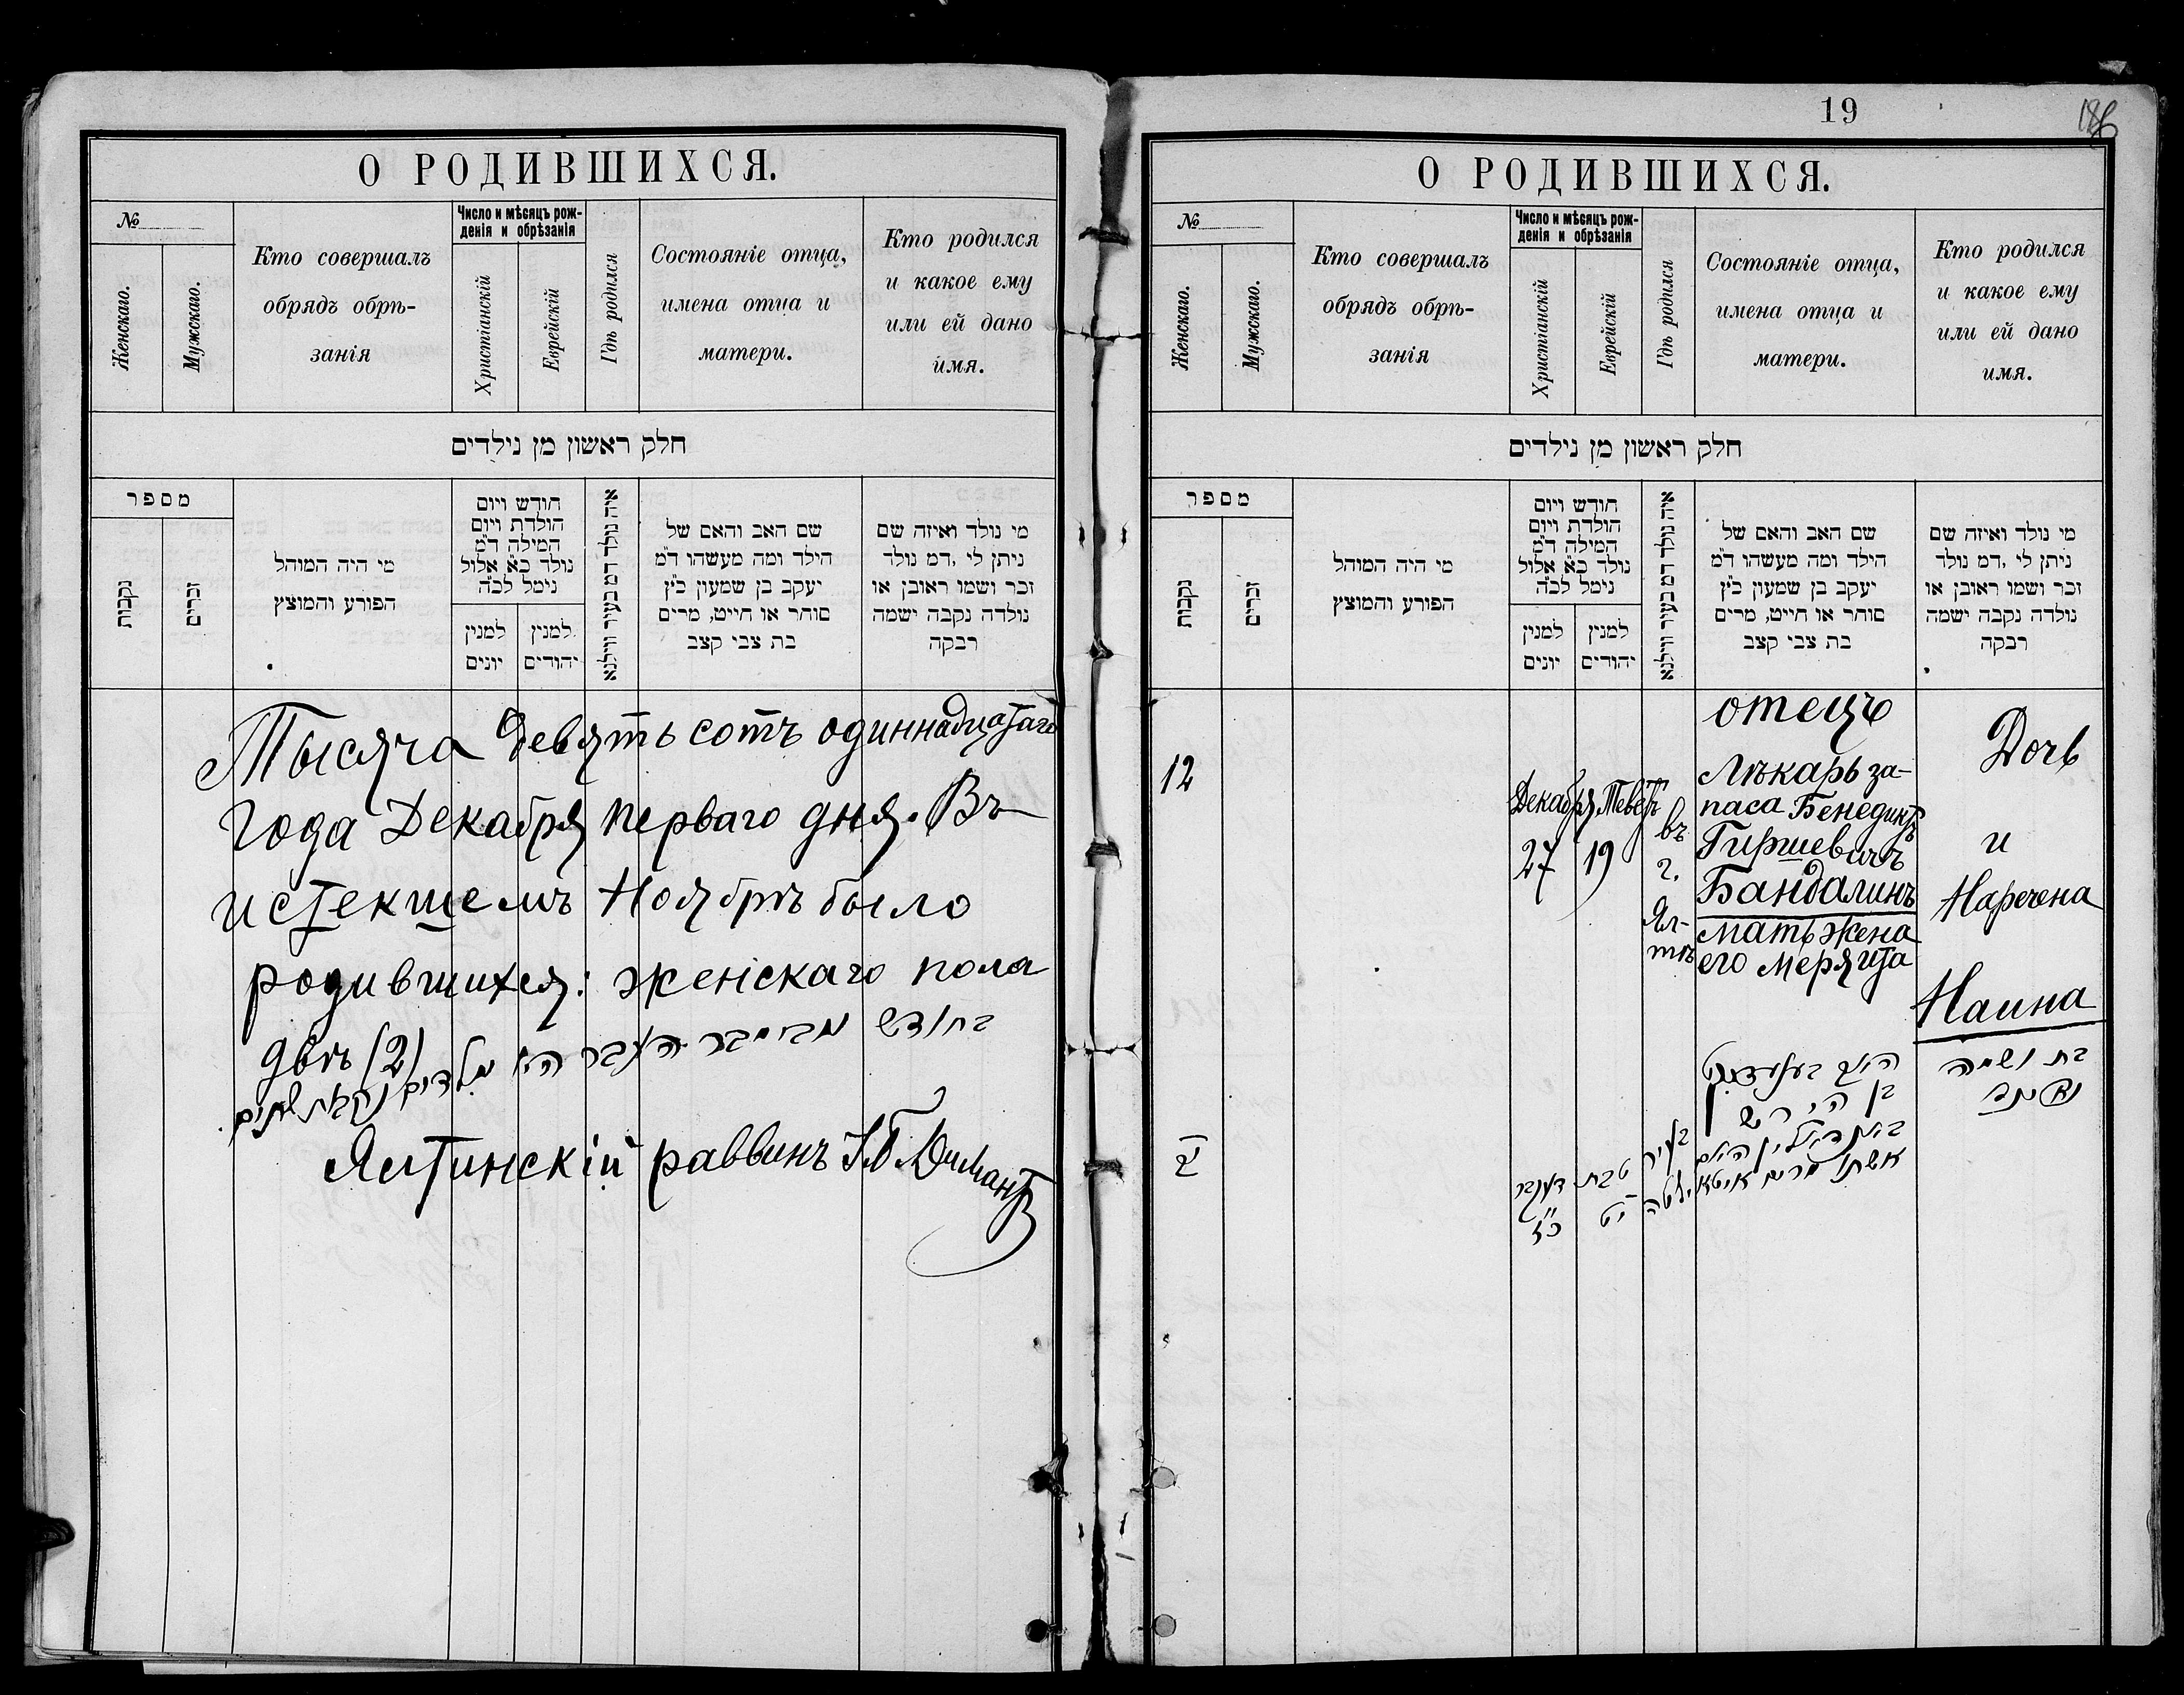 О РОДИВШИХСЯ.
№
Женскаго.
Мужскаго.
Кто совершалъ
обрядъ обрѣ-
занія
Число и мѣсяцъ рож-
денія и обрѣзанія
Христіанскій
Еврейскій
Гдѣ родился
Состояніе отца,
имена отца и
матери.
Кто родился
и какое ему
или ей дано
имя.
חלק ראשון מן נילדים
מספר
נקבות
זכרים
מי היה המוהל
הפורע והמוצץ
חודש ויום
הולדת ויום
המילה ד״מ
נולד כ״א אלול
נימל לכ״ה
למנין
יונים
למנין
יהודים
איה נולד דמ בעיר ווילנא
שם האב והאם של
הילד ומה מעשהו ד״מ
יעקב בן שמעון כ״ץ
סוחר או חייט, מרים
בת צבי קצב
מי נולד ואיזה שם
ניתן לי, דמ נולד
זכר ושמו ראובן או
נולדה נקבה ישמה
רבקה
Тысяча девять сотъ одиннадцатаго
года Декабря перваго дня. Въ
истекшемъ Ноябрѣ было
родившихся: женскаго пола
двѣ (2)
בחודש נבימבר העבר היו
ילדים נקבות שתים
Ялтинскій раввинъ Димантъ
19
О РОДИВШИХСЯ.
№
Женскаго.
Мужскаго.
Кто совершалъ
обрядъ обрѣ-
занія
Число и мѣсяцъ рож-
денія и обрѣзанія
Христіанскій
Еврейскій
Гдѣ родился
Состояніе отца,
имена отца и
матери.
Кто родился
и какое ему
или ей дано
имя.
חלק ראשון מן נילדים
מספר
נקבות
זכרים
מי היה המוהל
הפורע והמוצץ
חודש ויום
הולדת ויום
המילה ד״מ
נולד כ״א אלול
נימל לכ״ה
למנין
יונים
למנין
יהודים
איה נולד דמ בעיר ווילנא
שם האב והאם של
הילד ומה מעשהו ד״מ
יעקב בן שמעון כ״ץ
סוחר או חייט, מרים
בת צבי קצב
מי נולד ואיזה שם
ניתן לי, דמ נולד
זכר ושמו ראובן או
נולדה נקבה ישמה
רבקה
12
Декабря
27
Теветъ
19
въ
г.
Ял-
тѣ
отецъ
Лѣкарь за-
паса Бенедиктъ
Гиршевичъ
Бандалинъ
мать жена
его Мерята
Дочь
и
Наречена
Наина
יב
דעקבר
כ״ז
טבת
י״ט
בעיר
ילטה
בן הירש
באנדאלין האם
אשתו מרים איטא
בת ושמה